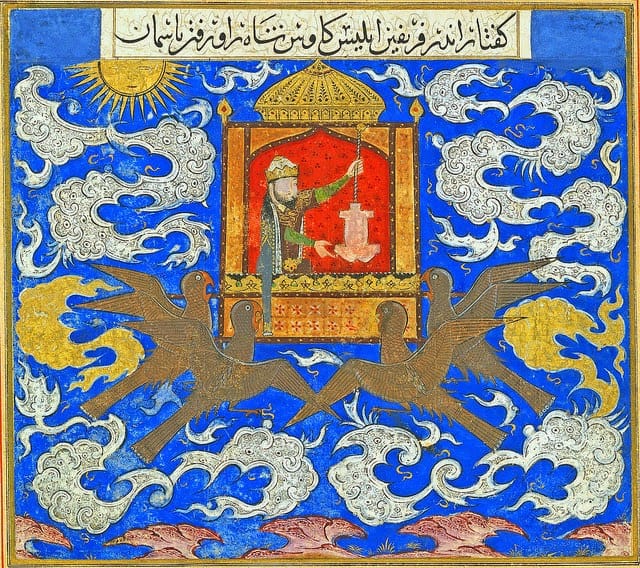 کفتار اندر فریفتن ابلیس کاوس شاه را و رفتن باسمان